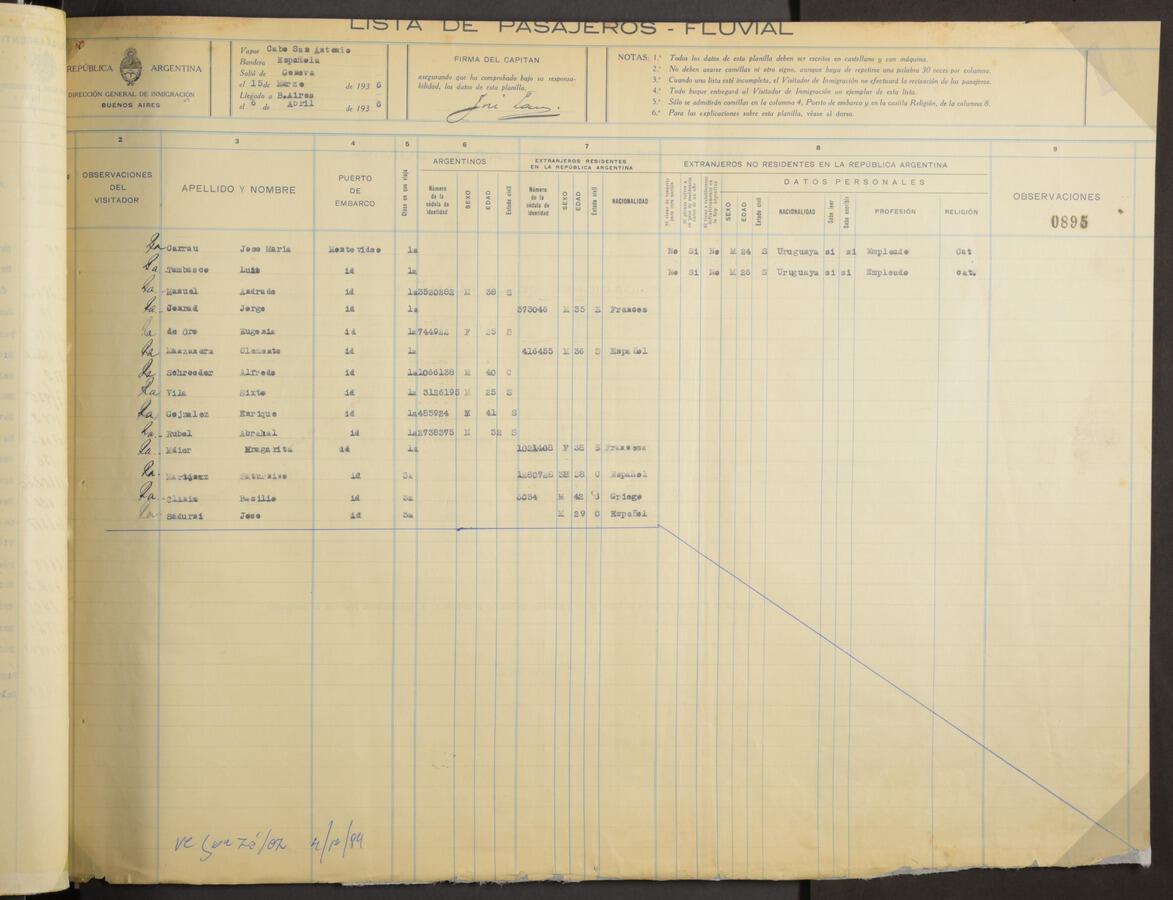 LISTA DE PASAJEROS - FLUVIAL
REPÚBLICA ARGENTINA
DIRECCIÓN GENERAL DE INMIGRACIÓN
BUENOS AIRES
Vapor Cabo San Antonio
Bandera Española
Salió de Genova
el 15 de Marzo de 1936
Llegado a B.Aires
el 6 de Abril de 1936
FIRMA DEL CAPITAN
asegurando que ha comprobado bajo su responsa-
bilidad, los datos de esta planilla.
NOTAS: 1.ª Todos los datos de esta planilla deben ser escritos en castellano y con máquina.
2.ª No deben usarse comillas ni otro signo, aunque haya de repetirse una palabra 30 veces por columna.
3.ª Cuando una lista esté incompleta, el Visitador de Inmigración no efectuará la revisación de los pasajeros.
4.ª Todo buque entregará al Visitador de Inmigración un ejemplar de esta lista.
5.ª Sólo se admitirán comillas en la columna 4, Puerto de embarco y en la casilla Religión, de la columna 8.
6.ª Para las explicaciones sobre esta planilla, véase al dorso.
2 3 4 5 6 7 8 9
OBSERVACIONES DEL VISITADOR
APELLIDO Y NOMBRE
PUERTO DE EMBARCO
Clase en que viaja
ARGENTINOS
Número de la cédula de identidad SEXO EDAD Estado civil
EXTRANJEROS RESIDENTES EN LA REPÚBLICA ARGENTINA
Número de la cédula de identidad SEXO EDAD Estado civil NACIONALIDAD
EXTRANJEROS NO RESIDENTES EN LA REPÚBLICA ARGENTINA
DATOS PERSONALES
SEXO EDAD Estado civil NACIONALIDAD Sabe leer Sabe escribir PROFESIÓN RELIGIÓN
OBSERVACIONES
0895
Carrau Jose Maria Montevideo 1a No Si No M 24 S Uruguaya si si Empleado Cat
Tambasco Luis id 1a No Si No M 25 S Uruguaya si si Empleado cat.
Manuel Andrade id 1a 3520282 M 38 S
Conrad Jorge id 1a 373046 M 35 Frances
de Oro Eugenia id 1a 744922 F 25 S
Clemente id 1a 416455 M 36 S Español
Schroeder Alfredo id 1a 1066138 M 40 C
Vila Sixto id 1a 3126195 M 25 S
Enrique id 1a 485924 M 41 S
Rubel id 1a 2738375 M 32 S
id 1a F 38 S Francesa
id 3a 38 C Español
Basilio id 3a M 42 Griego
Jose id 3a M 29 C Español